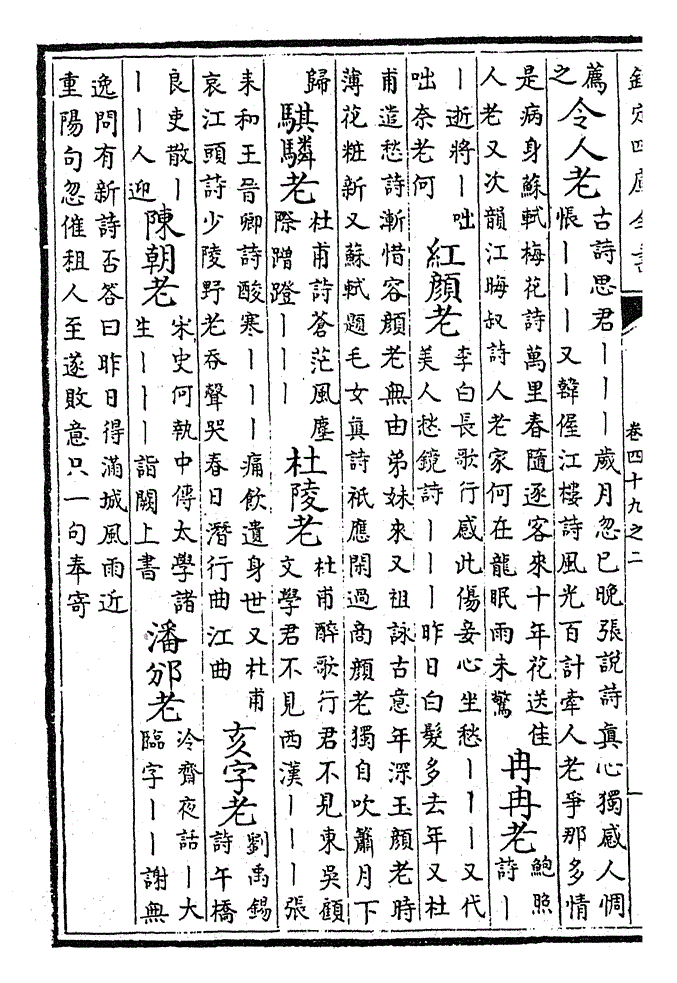 欽定四庫全書
卷四十九之二
一
薦
之
令人老
古詩思君丨丨丨歲月忽已晚張說詩真心獨感人惆
悵丨丨丨又韓偓江樓詩風光百計牽人老爭那多情
是病身蘇軾梅花詩萬里春隨逐客來十年花送佳
人老又次韻江晦叔詩人老家何在龍眠雨未驚
冉冉老
鮑照
詩丨
丨逝將丨咄
咄奈老何
紅顏老
李白長歌行感此傷妾心坐愁丨丨丨又代
美人愁鏡詩丨丨丨昨日白髮多去年又杜
甫遣愁詩漸惜容顏老無由弟妹來又祖詠古意年深玉顏老時
薄花粧新又蘇軾題毛女真詩祇應閑過商顏老獨自吹簫月下
歸
騏驎老
杜甫詩蒼茫風塵
際蹭蹬丨丨丨
杜陵老
杜甫醉歌行君不見東吳顧
文學君不見西漢丨丨丨張
耒和王晉卿詩酸寒丨丨丨痛飲遺身世又杜甫
哀江頭詩少陵野老吞聲哭春日潛行曲江曲
亥字老
劉禹錫
詩午橋
良吏散丨
丨丨人迎
陳朝老
宋史何執中傳太學諸
生丨丨丨詣闕上書
潘邠老
冷齋夜話丨大
臨字丨丨謝無
逸問有新詩否答曰昨日得滿城風雨近
重陽句忽催租人至遂敗意只一句奉寄